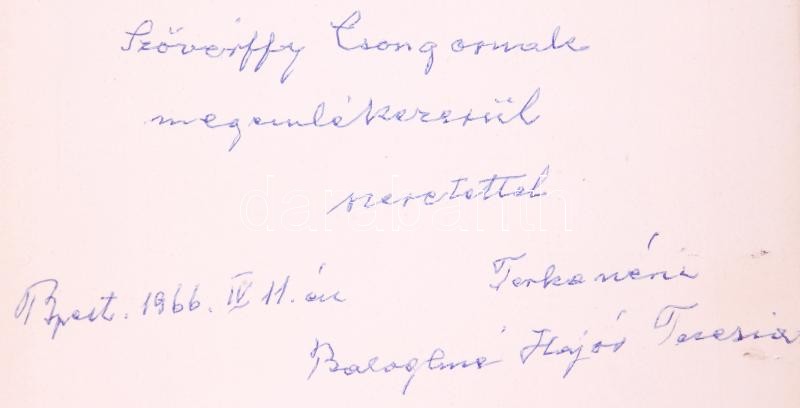 Szővérffy Csongornak
megemlékezésül
szeretettel
Bpest. 1966. IV 11.-én
Terka néni
Baloghné Hajós Terézia